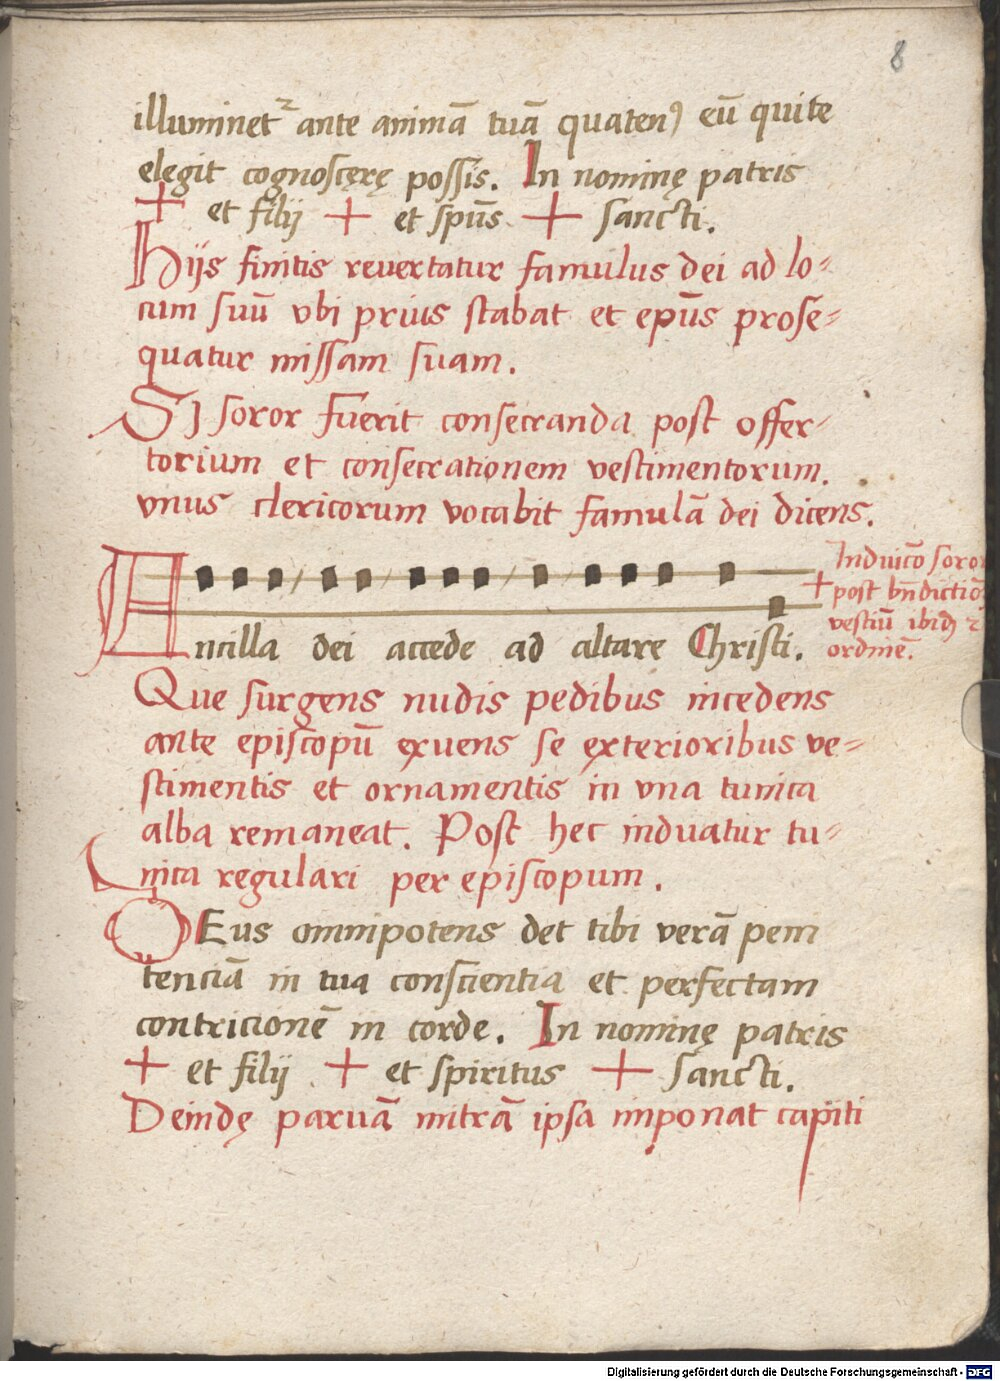 8
illuminetᷣ ante animā tuā quatenꝰ eū qui te
elegit cognoscęrę possis. In nominę patris
+ et filij + et spūs + sancti.
Hijs finitis revertatur famulus dei ad lo-
cum suū vbi prius stabat et ep̄us prose-
quatur missam suam.
Si soror fuerit consecranda post offer-
torium et consecrationem vestimentorum.
vnus clericorum vocabit famulā dei dicens.
Ancilla dei accede ad altarę Christi.
Induicō soror
+ post bn̄dictiō
vestiū ibiđ ꝛ
ordinē.
Que surgens nudis pedibus incedens
ante episcopū exuens se exterioribus ve-
stimentis et ornamentis in vna tunica
alba remaneat. Post hec induatur tu-
nica regulari per episcopum.
DEus omnipotens det tibi verā peni
tenciā in tua conscientia et perfectam
contricionē in corde. In nominę patris
+ et filij + et spiritus + sancti.
Deindę paruā mitrā ipsa imponat capiti
Digitalisierung gefördert durch die Deutsche Forschungsgemeinschaft - DFG